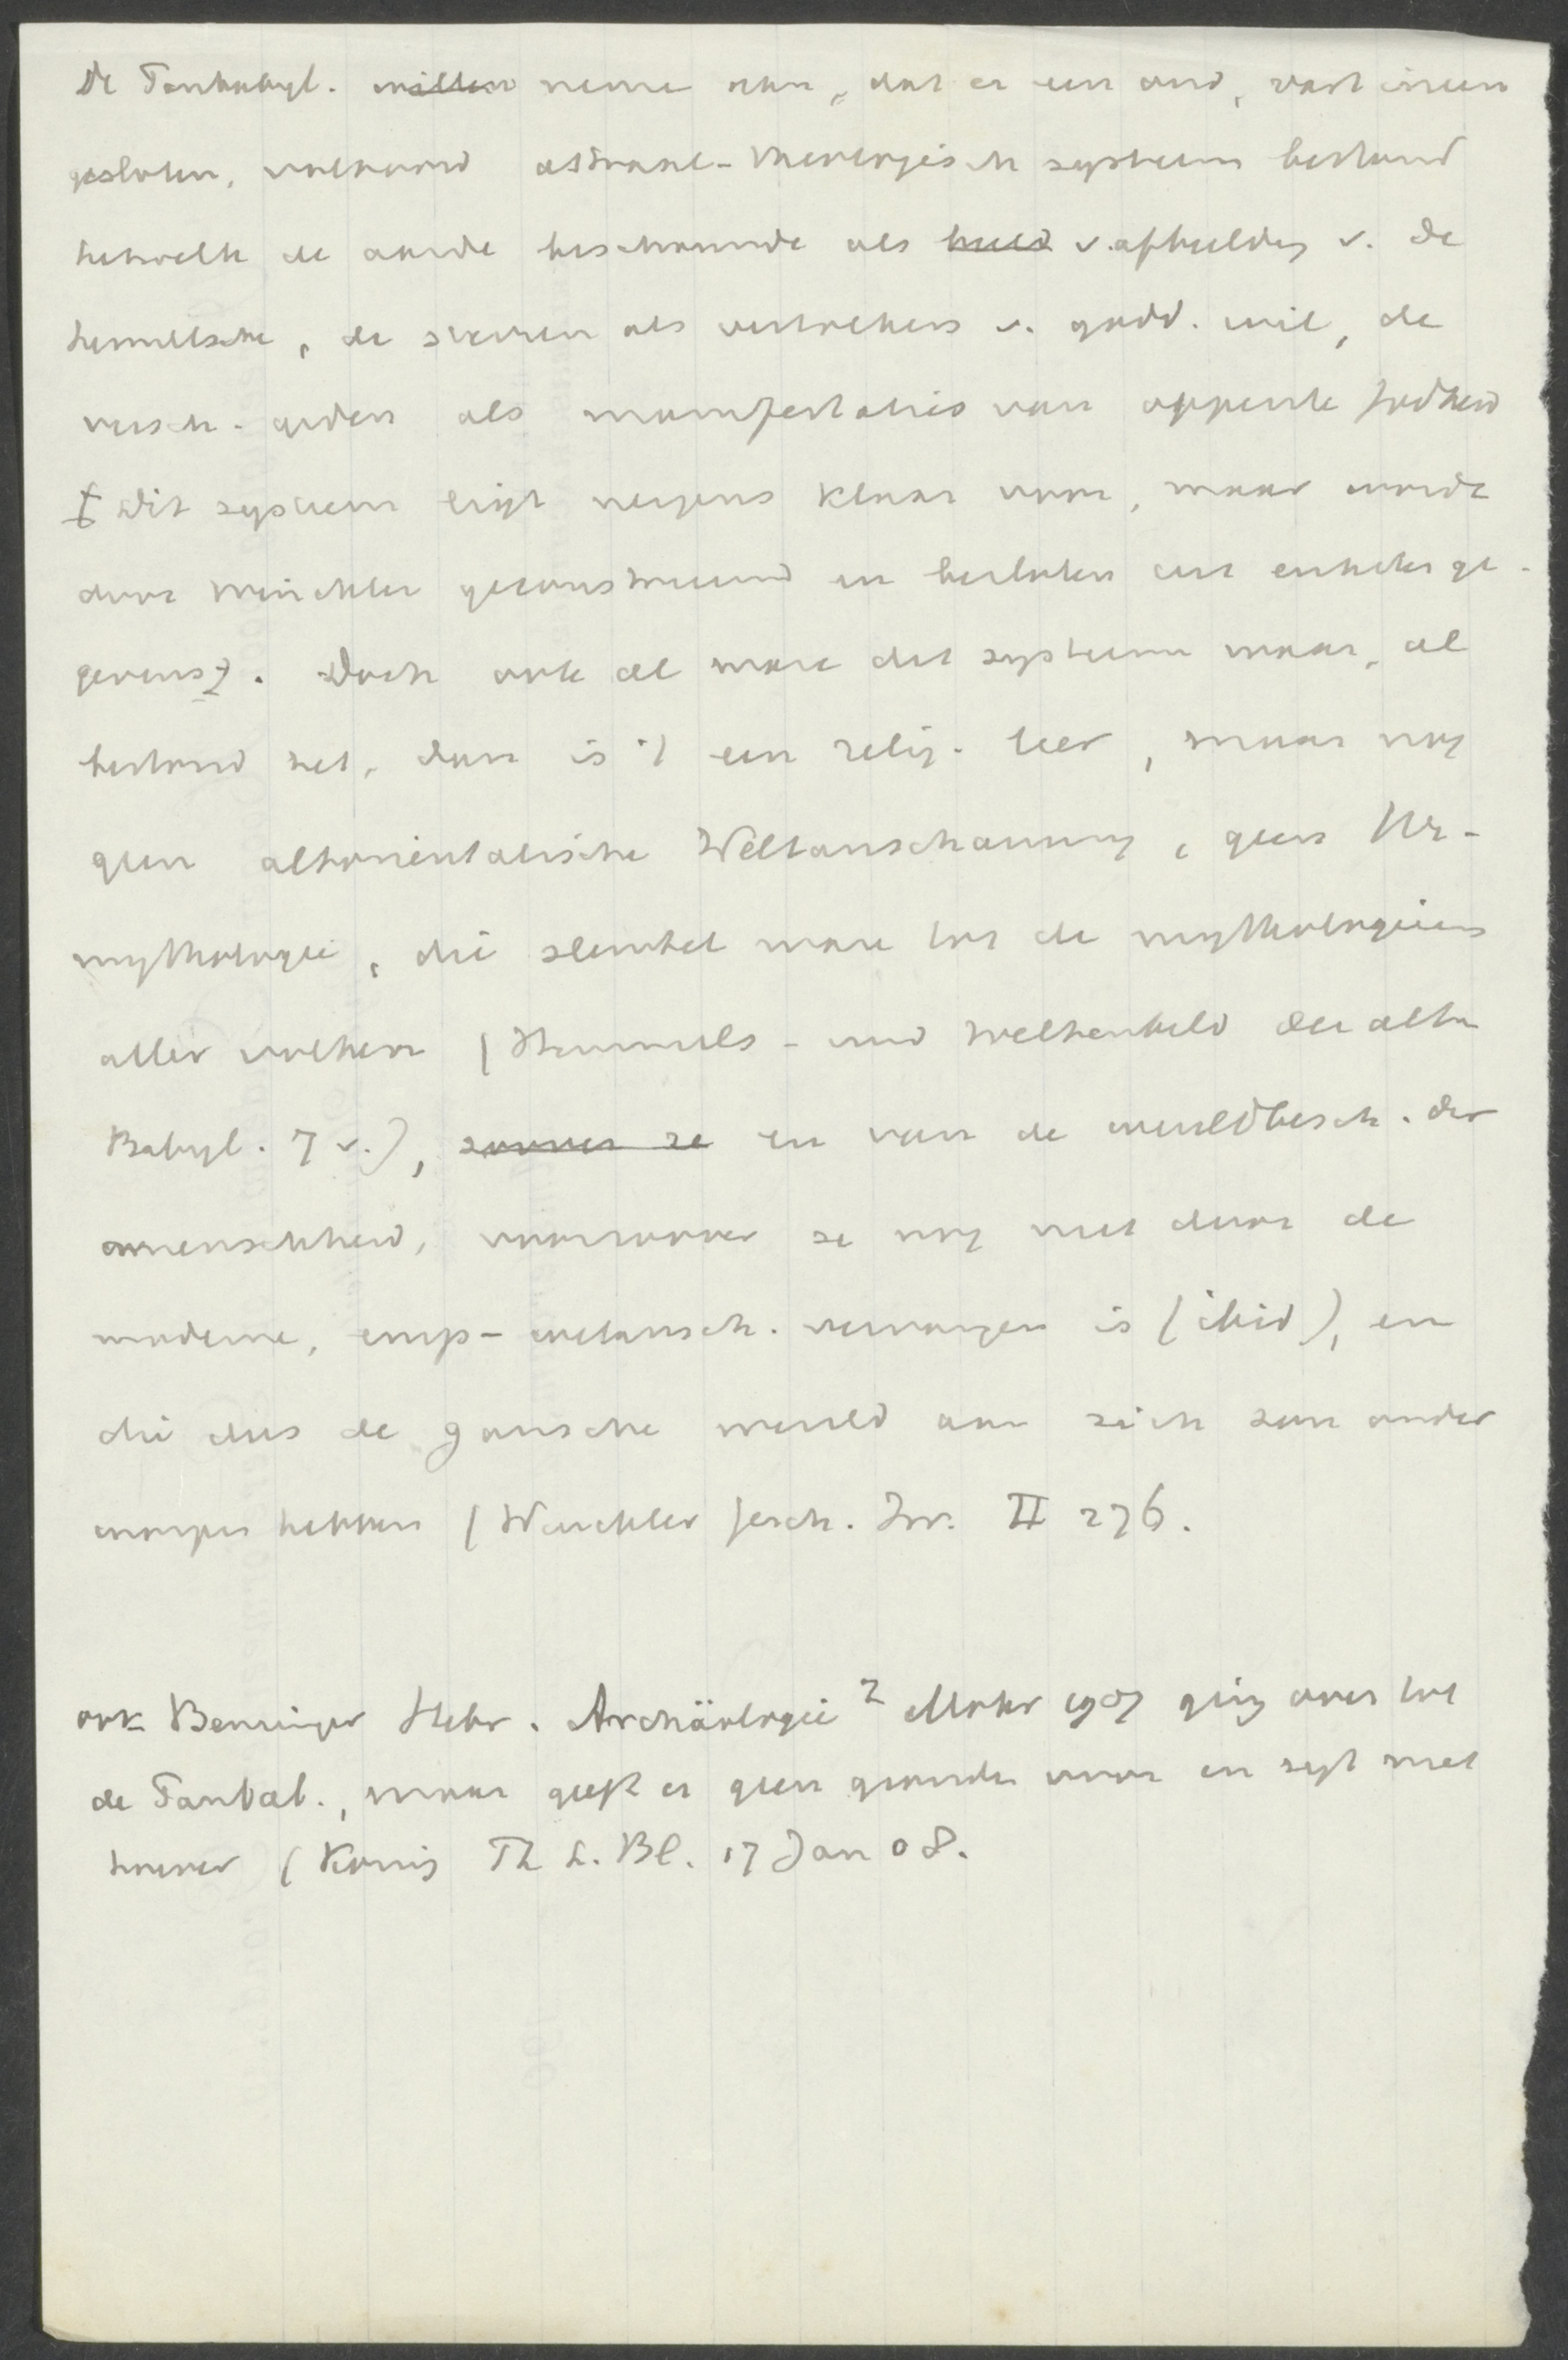 De Panbabyl. willen neme aan, dat er een oud, vast ineen
gesloten, volkomen astraal-theologisch systeem bestond
hetwelk de aarde beschouwde als beeld v. afbeelding v. de
hemelsche, de sterren als vertolkers v. godd. wil, de
versch. goden als manifestaties van opperste Godheid
[Dit systeem ligt nergens klaar voor, maar wordt
door Winckler geconstrueerd en besloten uit enkele ge-
gevens]. Doch ook al ware dit systeem waar, al
bestond het, dan is 't een relig. leer, maar nog
geen altorientalische Weltanschauung, geen Ur-
mythologie, die sleutel ware tot de mythologieën
aller volken (Himmels- und Weltenbild der alten
Babyl. 7 v.), zoover ze en van de wereldbesch. der
menschheid, voorzoover ze nog niet door de
moderne, emp- welansch. vervangen is (ibid), en
die dus de gansche wereld aan zich zou onder
worpen hebben (Winckler Gesch. Isr. II 276.
ook Benzinger Hebr. Archäologie 2 Mohr 1907 ging over tot
de Panbab., maar geeft er geen gronden voor en zegt niet
hoever (König Th L. Bl. 17 Jan 08.